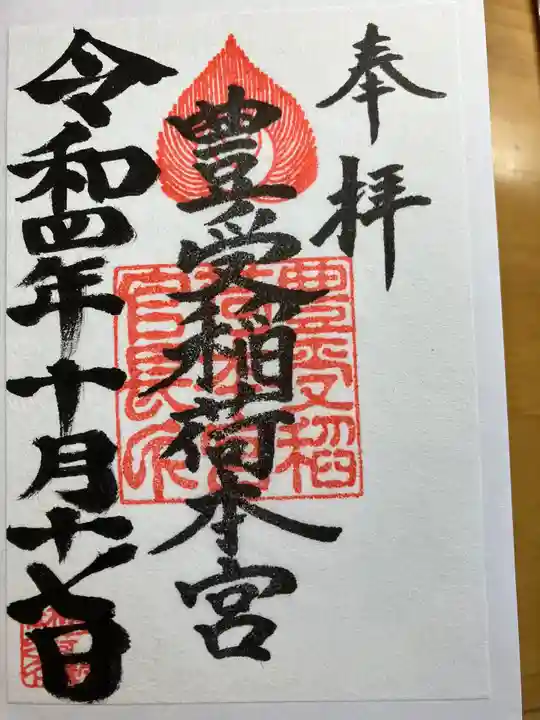 奉拝
豊受稲荷本宮
令和四年十月十七日
豊受稲
荷本宮
宮長印